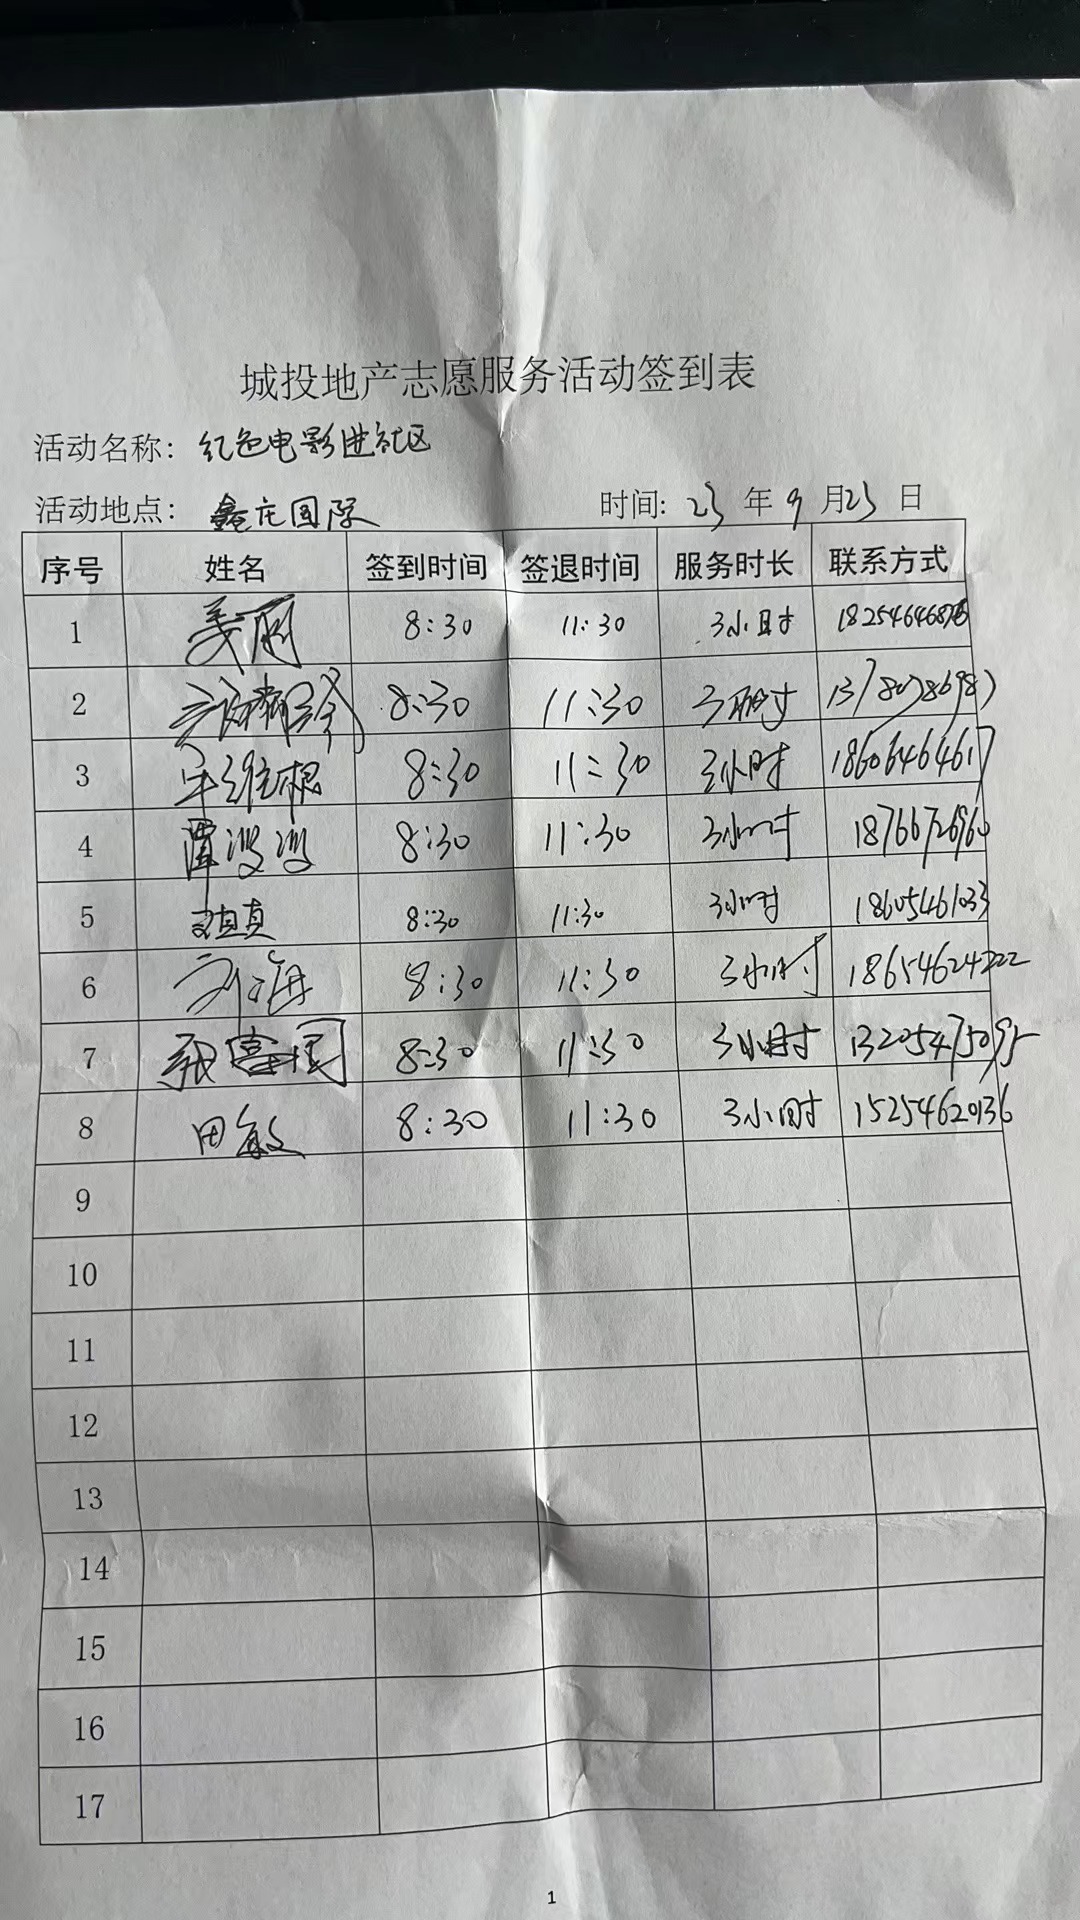 城投地产志愿服务活动签到表
活动名称: 红色电影进社区
活动地点: 鑫庄国际 时间: 23 年 9 月 23 日
序号 姓名 签到时间 签退时间 服务时长 联系方式
1 姜丽 8:30 11:30 3小时
2 8:30 11:30 3小时
3 宋维根 8:30 11:30 3小时 18606464617
4 覃波波 8:30 11:30 3小时 18766726960
5 8:30 11:30 3小时 18605461033
6 刘海 8:30 11:30 3小时 18654624222
7 张富国 8:30 11:30 3小时 13205475095
8 田敏 8:30 11:30 3小时 15254620136
9
10
11
12
13
14
15
16
17
1